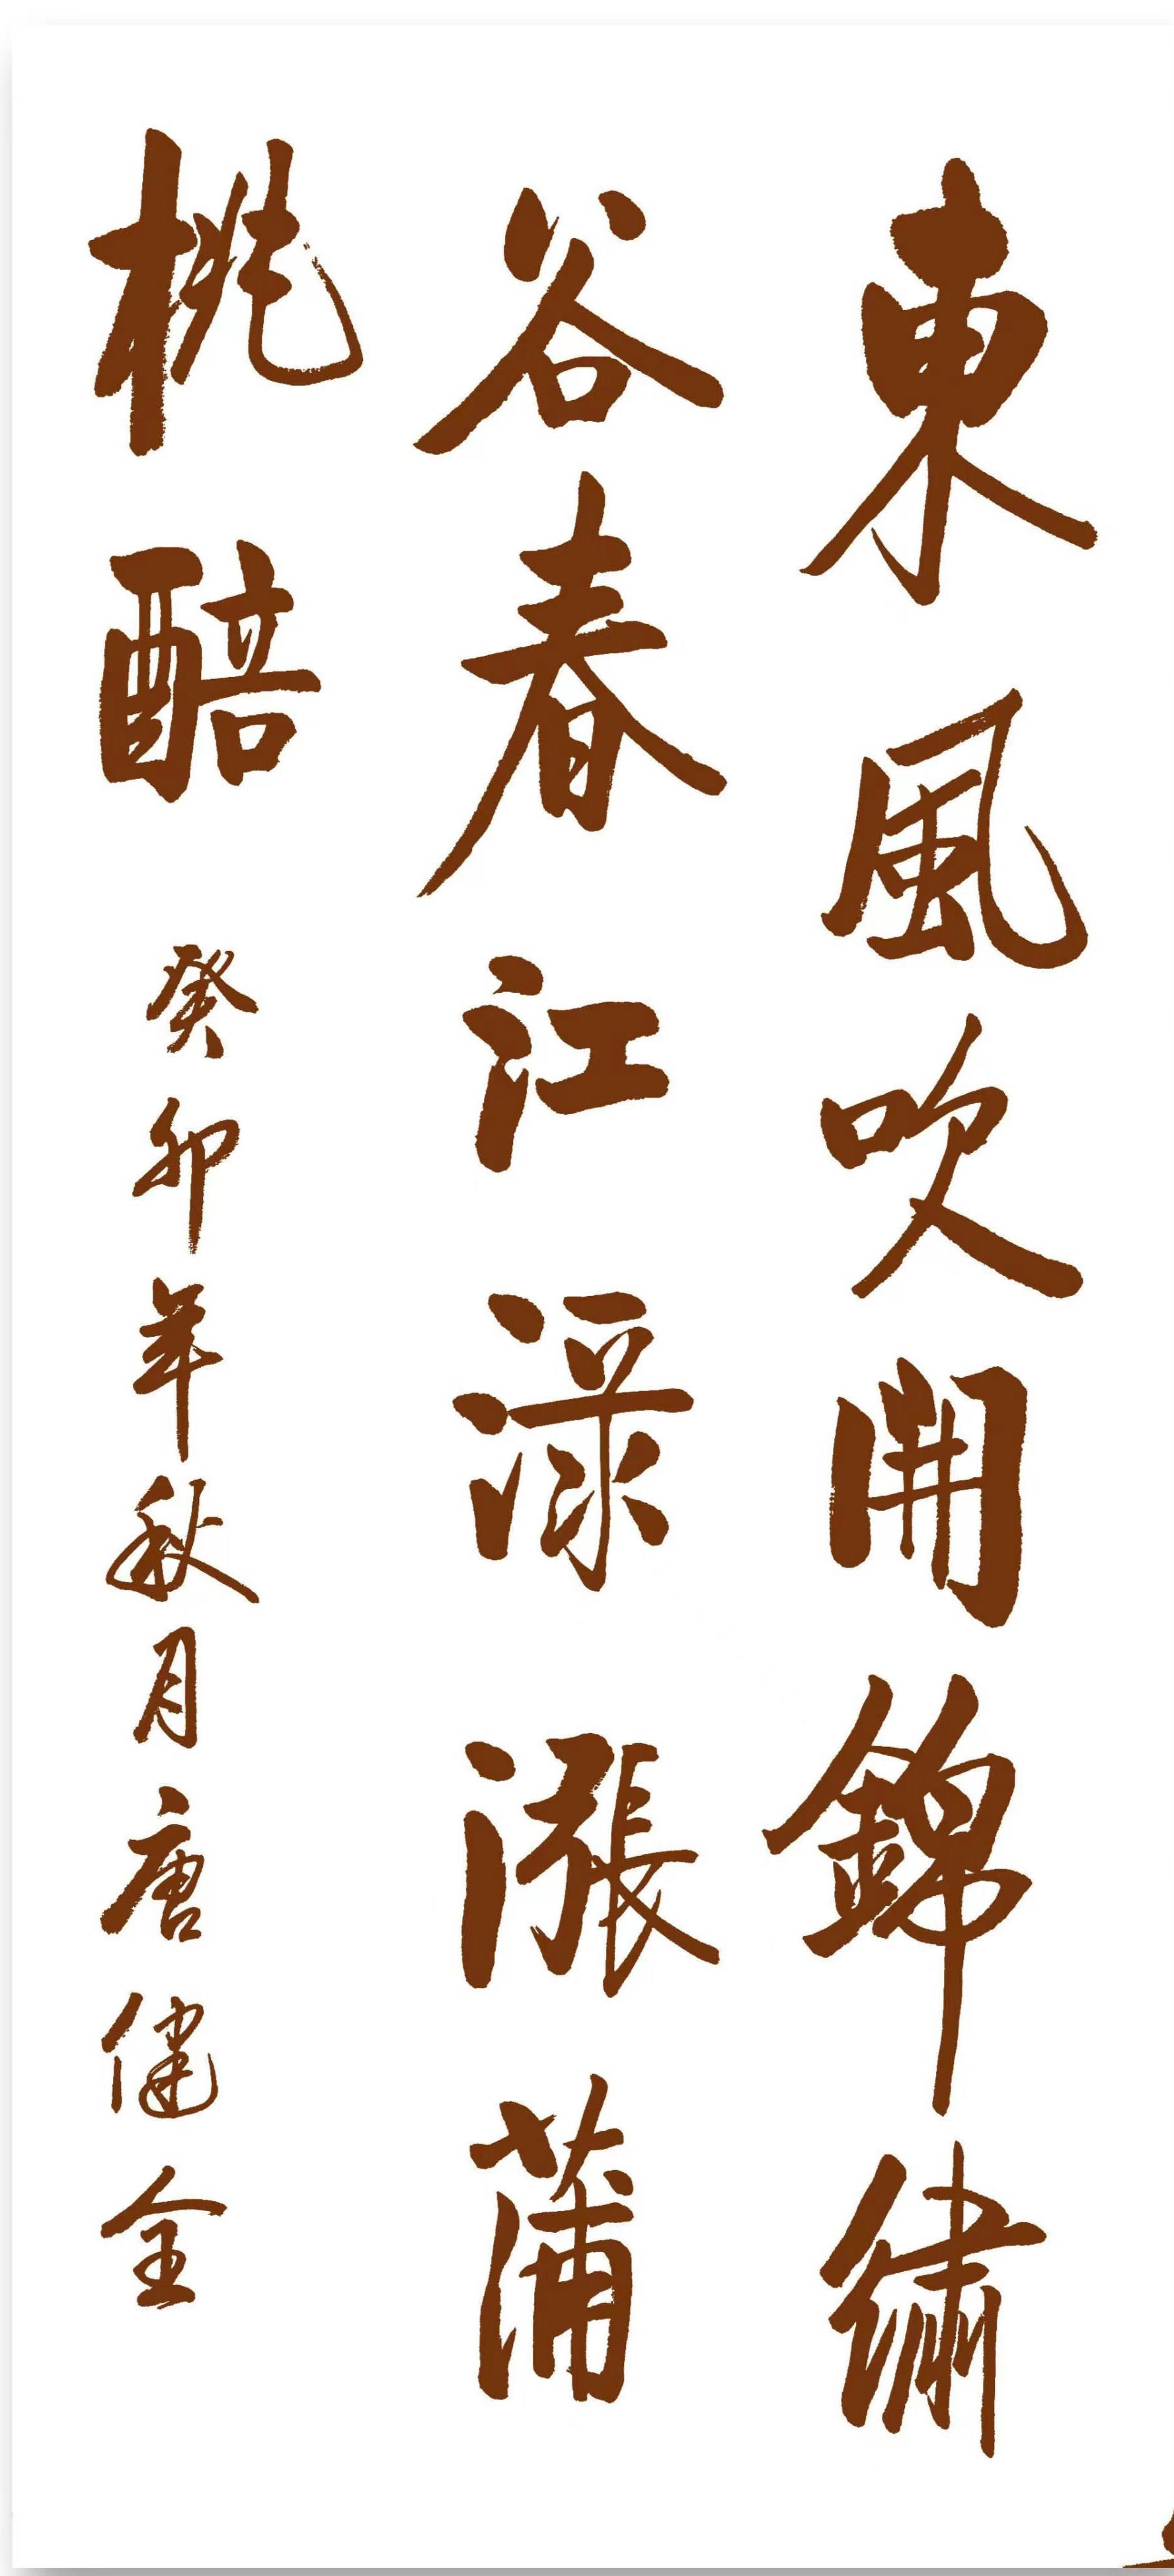 東風吹開錦繡
谷春江渌漲蒲
桃醅
癸卯年秋月唐健全